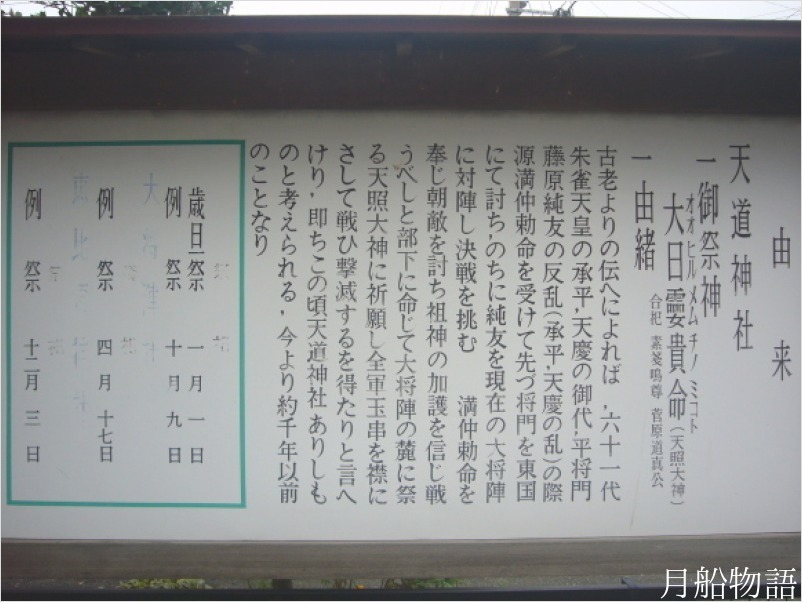 由来
天道神社
一御祭神
オオヒルメムチノミコト
大日孁貴命(天照大神)
合祀 素盞嗚尊 菅原道真公
一由緒
古老よりの伝へによれば、六十一代
朱雀天皇の承平、天慶の御代、平将門
藤原純友の反乱(承平、天慶の乱)の際
源満仲勅命を受けて先づ将門を東国
にて討ち、のちに純友を現在の大将陣
に対陣し決戦を挑む 満仲勅命を
奉じ朝敵を討ち祖神の加護を信じ戦
うべしと部下に命じて大将陣の麓に祭
る天照大神に祈願し全軍玉串を襟に
さして戦ひ撃滅するを得たりと言へ
けり、即ちこの頃天道神社ありしも
のと考えられる、今より約千年以前
のことなり
歳旦祭 一月一日
例祭 十月九日
例祭 四月十七日
例祭 十二月三日
月船物語